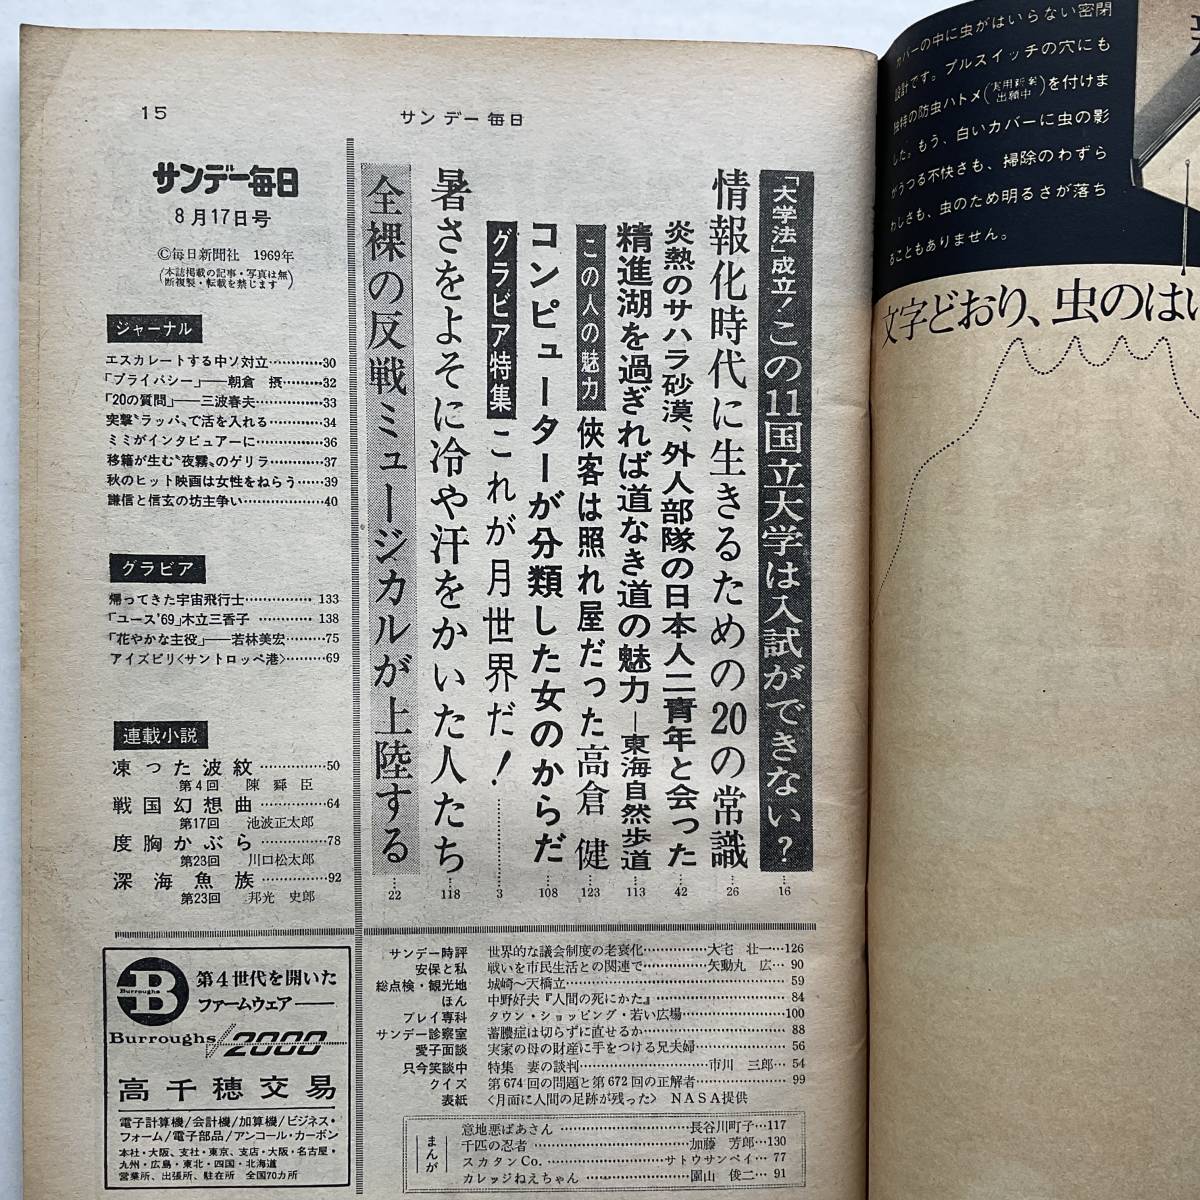 15
サンデー毎日
サンデー毎日
8月17日号
©毎日新聞社 1969年
(本誌掲載の記事・写真は無
断複製・転載を禁じます)
ジャーナル
エスカレートする中ソ対立…………30
「プライバシー」──朝倉 摂………32
「20の質問」──三波春夫……………33
突撃〝ラッパ〟で活を入れる…………34
ミミがインタビュアーに……………36
移籍が生む〝夜霧〟のゲリラ…………37
秋のヒット映画は女性をねらう……39
謙信と信玄の坊主争い………………40
グラビア
帰ってきた宇宙飛行士…………… 133
「ユース'69」木立三香子 ………… 138
「花やかな主役」──若林美宏………75
アイズピリ〈サントロッペ港〉………69
連載小説
凍った波紋……………50
第4回 陳舜臣
戦国幻想曲……………64
第17回 池波正太郎
度胸かぶら……………78
第23回 川口松太郎
深海魚族……………92
第23回 邦光史郎
「大学法」成立!この11国立大学は入試ができない?…16
情報化時代に生きるための20の常識…26
炎熱のサハラ砂漠、外人部隊の日本人二青年と会った…42
精進湖を過ぎれば道なき道の魅力─東海自然歩道…113
この人の魅力 侠客は照れ屋だった高倉 健…123
コンピューターが分類した女のからだ…108
グラビア特集 これが月世界だ!…………3
暑さをよそに冷や汗をかいた人たち…118
全裸の反戦ミュージカルが上陸する…22
サンデー時評 世界的な議会制度の老衰化……………大宅 壮一…126
安保と私 戦いを市民生活との関連で……………矢動丸 広… 90
総点検・観光地 城崎〜天橋立…………………………59
ほん 中野好夫『人間の死にかた』……………84
プレイ専科 タウン・ショッピング・若い広場……………100
サンデー診察室 蓄膿症は切らずに直せるか……………88
愛子面談 実家の母の財産に手をつける兄夫婦……………56
只今笑談中 特集 妻の談判……………市川 三郎… 54
クイズ 第674回の問題と第672回の正解者……………99
表紙 〈月面に人間の足跡が残った〉 NASA提供
まんが
意地悪ばあさん……………長谷川町子…117
千匹の忍者……………加藤 芳郎…130
スカタンCo.……………サトウサンペイ… 77
カレッジねえちゃん……………園山 俊二… 91
B
Burroughs
第4世代を開いた
ファームウェア──
Burroughs/2000
高千穂交易
電子計算機/会計機/加算機/ビジネス・
フォーム/電子部品/アンコール・カーボン
本社・大阪、支社・東京、支店・大阪・名古屋・
九州・広島・東北・四国・北海道
営業所、出張所、駐在所 全国70カ所
カバーの中に虫がはいらない密閉
設計です。プルスイッチの穴にも
独特の防虫ハトメ(実用新案出願中)を付けま
した。もう、白いカバーに虫の影
がうつる不快さも、掃除のわずら
わしさも、虫のため明るさが落ち
ることもありません。
文字どおり、虫のはい